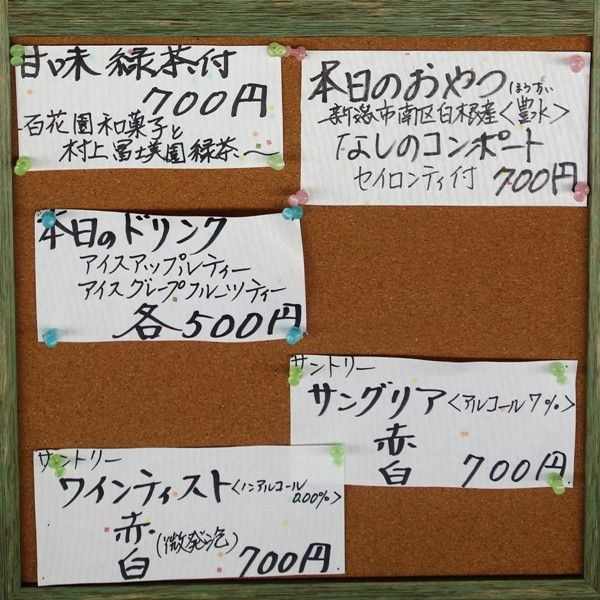 甘味 緑茶付
700円
百花園和菓子と
村上冨士美園緑茶〜
本日のおやつ
新潟市南区白根産<豊水>
ほうすい
なしのコンポート
セイロンティ付 700円
本日のドリンク
アイスアップルティー
アイスグレープフルーツティー
各500円
サントリー
サングリア<アルコール7%>
赤
白 700円
サントリー
ワインティスト<ノンアルコール0.00%>
赤
白(微発泡) 700円